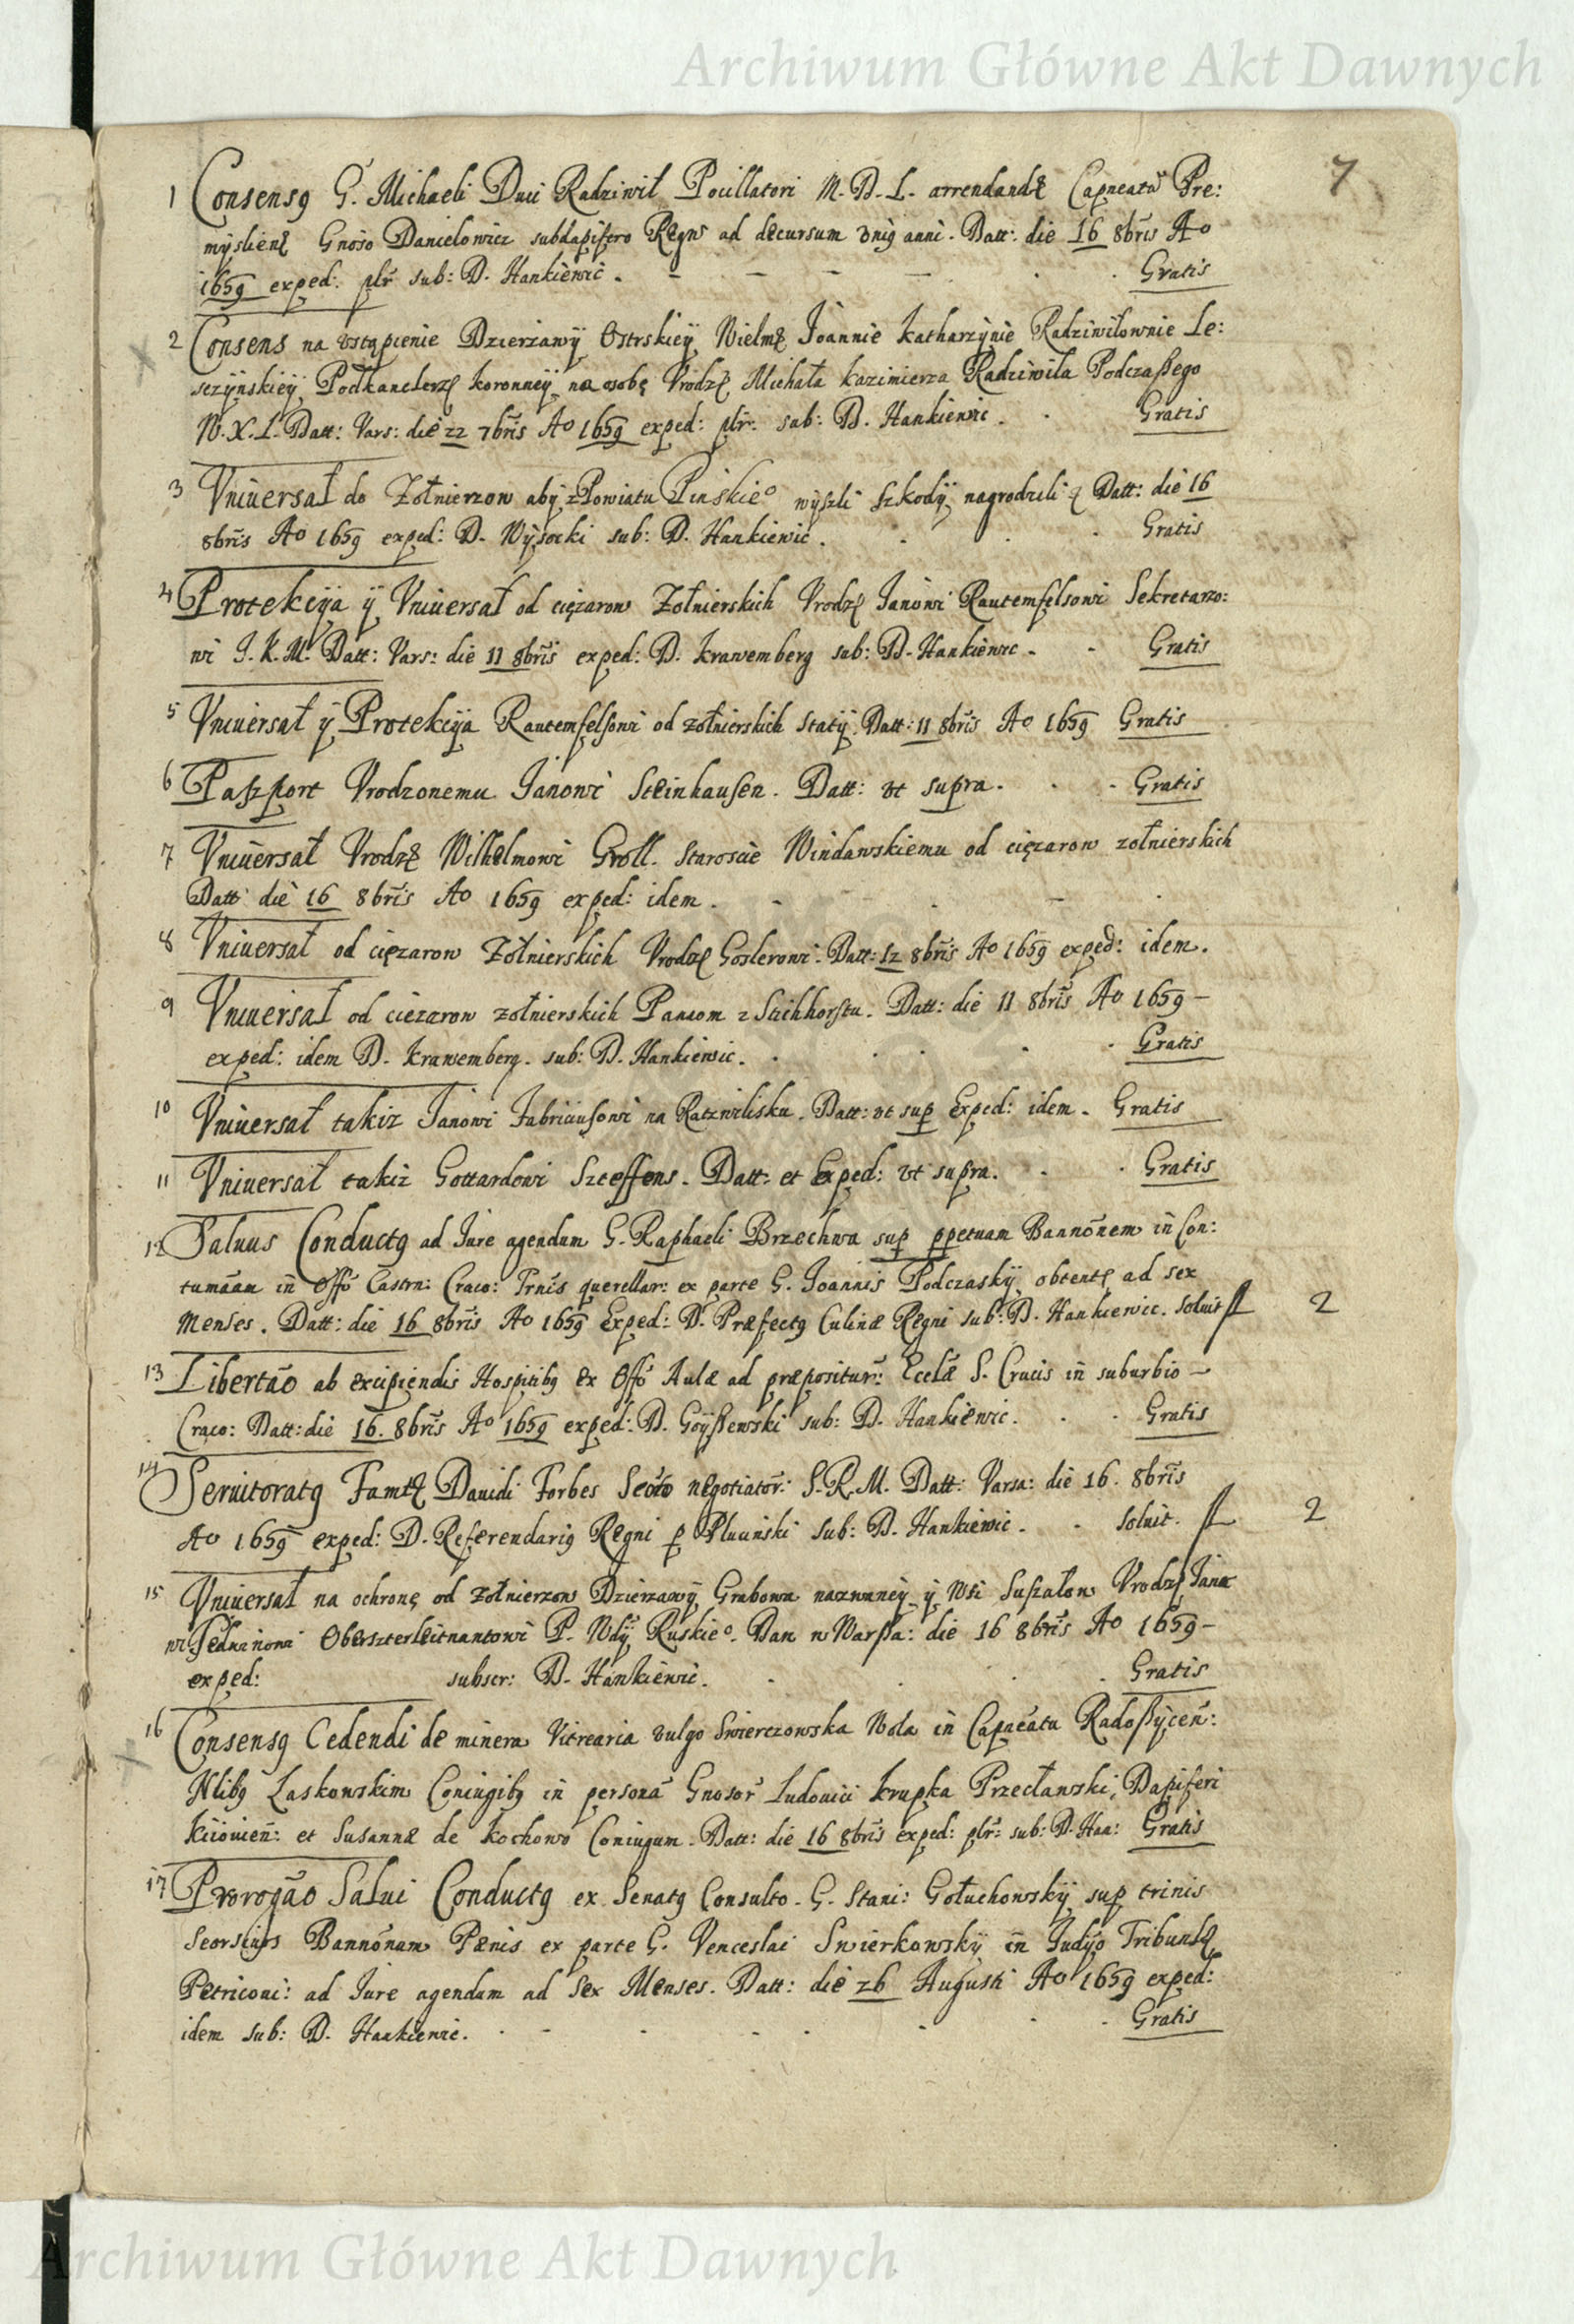 Archiwum Główne Akt Dawnych
7
1 Consens9 G. Michaeli Duci Radziwił Pocillatori M. D. L. arrendandę Capneatū Pre:
myslienę Gnoso Danielowicz subdapifero Regni ad decursum vni9 anni. Datt: die 16 8bris Ao
1659 exped: plr sub: D. Hankiewic. Gratis
2 Consens na vstąpienie Dzierżawy Ostrskiey Wielmę Joannie Katharzynie Radziwiłownie Le:
sczyńskiey Podkanclerzę koronney na osobę Vrodzę Michała Kazimierza Radziwiła Podczaßego
W. X. L. Datt: Vars: die 22 7bris Ao 1659 exped: plr: sub: D. Hankiewic. Gratis
3 Vniuersał do Żołnierzow aby z Powiatu Pinskieo wyszli szkody nagrodzili Datt: die 16
8bris Ao 1659 exped: D. Wysocki sub: D. Hankiewic. Gratis
4 Protekcya y Vniuersał od ciężarow Żołnierskich Vrodzę Janowi Rautemfelsowi Sekretarzo:
wi J. K. M. Datt: Vars: die 11 8bris exped: D. Krawemberg sub: D. Hankiewic. Gratis
5 Vniuersał y Protekcya Rautemfelsowi od żołnierskich staty Datt: 11 8bris Ao 1659 Gratis
6 Paszport Vrodzonemu Janowi Steinhausen. Datt: vt supra. Gratis
7 Vniuersał Vrodzę Wilhelmowi Groll. Staroscie Windawskiemu od ciężarow żołnierskich
Datt: die 16 8bris Ao 1659 exped: idem.
8 Vniuersał od ciężarow Żołnierskich Vrodzę Goslerowi. Datt: 12 8bris Ao 1659 exped: idem.
9 Vniuersał od ciezarow żołnierskich Panom z Stichhorstu. Datt: die 11 8bris Ao 1659 –
exped: idem D. Krawemberg. sub: D. Hankiewic. Gratis
10 Vniuersał takiż Janowi Fabriciusowi na Ratzwilisku. Datt: vt sup Exped: idem. Gratis
11 Vniuersał takiż Gottardowi Szteffens. Datt: et Exped: vt supra. Gratis
12 Saluus Conduct9 ad Jure agendum G. Raphaeli Brzechwa sup ppetuam Bannōnem in Con:
tumāam in Offō Castrn: Craco: Prnīs querellar: ex parte G. Joannis Podczasky obtentę ad sex
Menses. Datt: die 16 8bris Ao 1659 Exped: D. Præfect9 Culinæ Regni sub: D. Hankiewic. soluit fl 2
13 Libertāo ab excipiendis Hospitib9 ex Offō Aulæ ad præpositur: Ecclæ S. Crucis in suburbio –
Craco: Datt: die 16. 8bris Ao 1659 exped: D. Goyßewski sub: D. Hankiewic. Gratis
14 Seruitorat9 Famtę Dauidi Forbes Scoto negotiator: S. R. M. Datt: Varsa: die 16. 8bris
Ao 1659 exped: D. Referendari9 Regni p Pluciński sub: D. Hankiewic. soluit. fl 2
15 Vniuersał na ochronę od żołnierzow Dzierżawy Grabowa nazwaney y Wsi Suszałow Vrodzę Jano
wi Oberszterleitnantowi P. Wdy Ruskieo. Dan w Warßa: die 16 8bris Ao 1659 –
exped: subscr: D. Hankiewic. Gratis
16 Consens9 Cedendi de minera Vitrearia vulgo Swierczowska Wola in Capneatu Radoßycen:
Nlib9 Laskowskim Coniugib9 in personā Gnosor Ludouici Krupka Przecławski, Dapiferi
Kiiouien: et Susannæ de Kochowo Coniugum. Datt: die 16 8bris exped: plr: sub: D. Han: Gratis
17 Prorogāo Salui Conduct9 ex Senat9 Consulto. G. Stani: Gołuchowsky sup trinis
seorsiuis Bannōnum Pænis ex parte G. Venceslai Swierkowsky in Judyo Tribunlę
Petricoui: ad Jure agendum ad sex Menses. Datt: die 26 Augusti Ao 1659 exped:
idem sub: D. Hankiewic. Gratis
Archiwum Główne Akt Dawnych